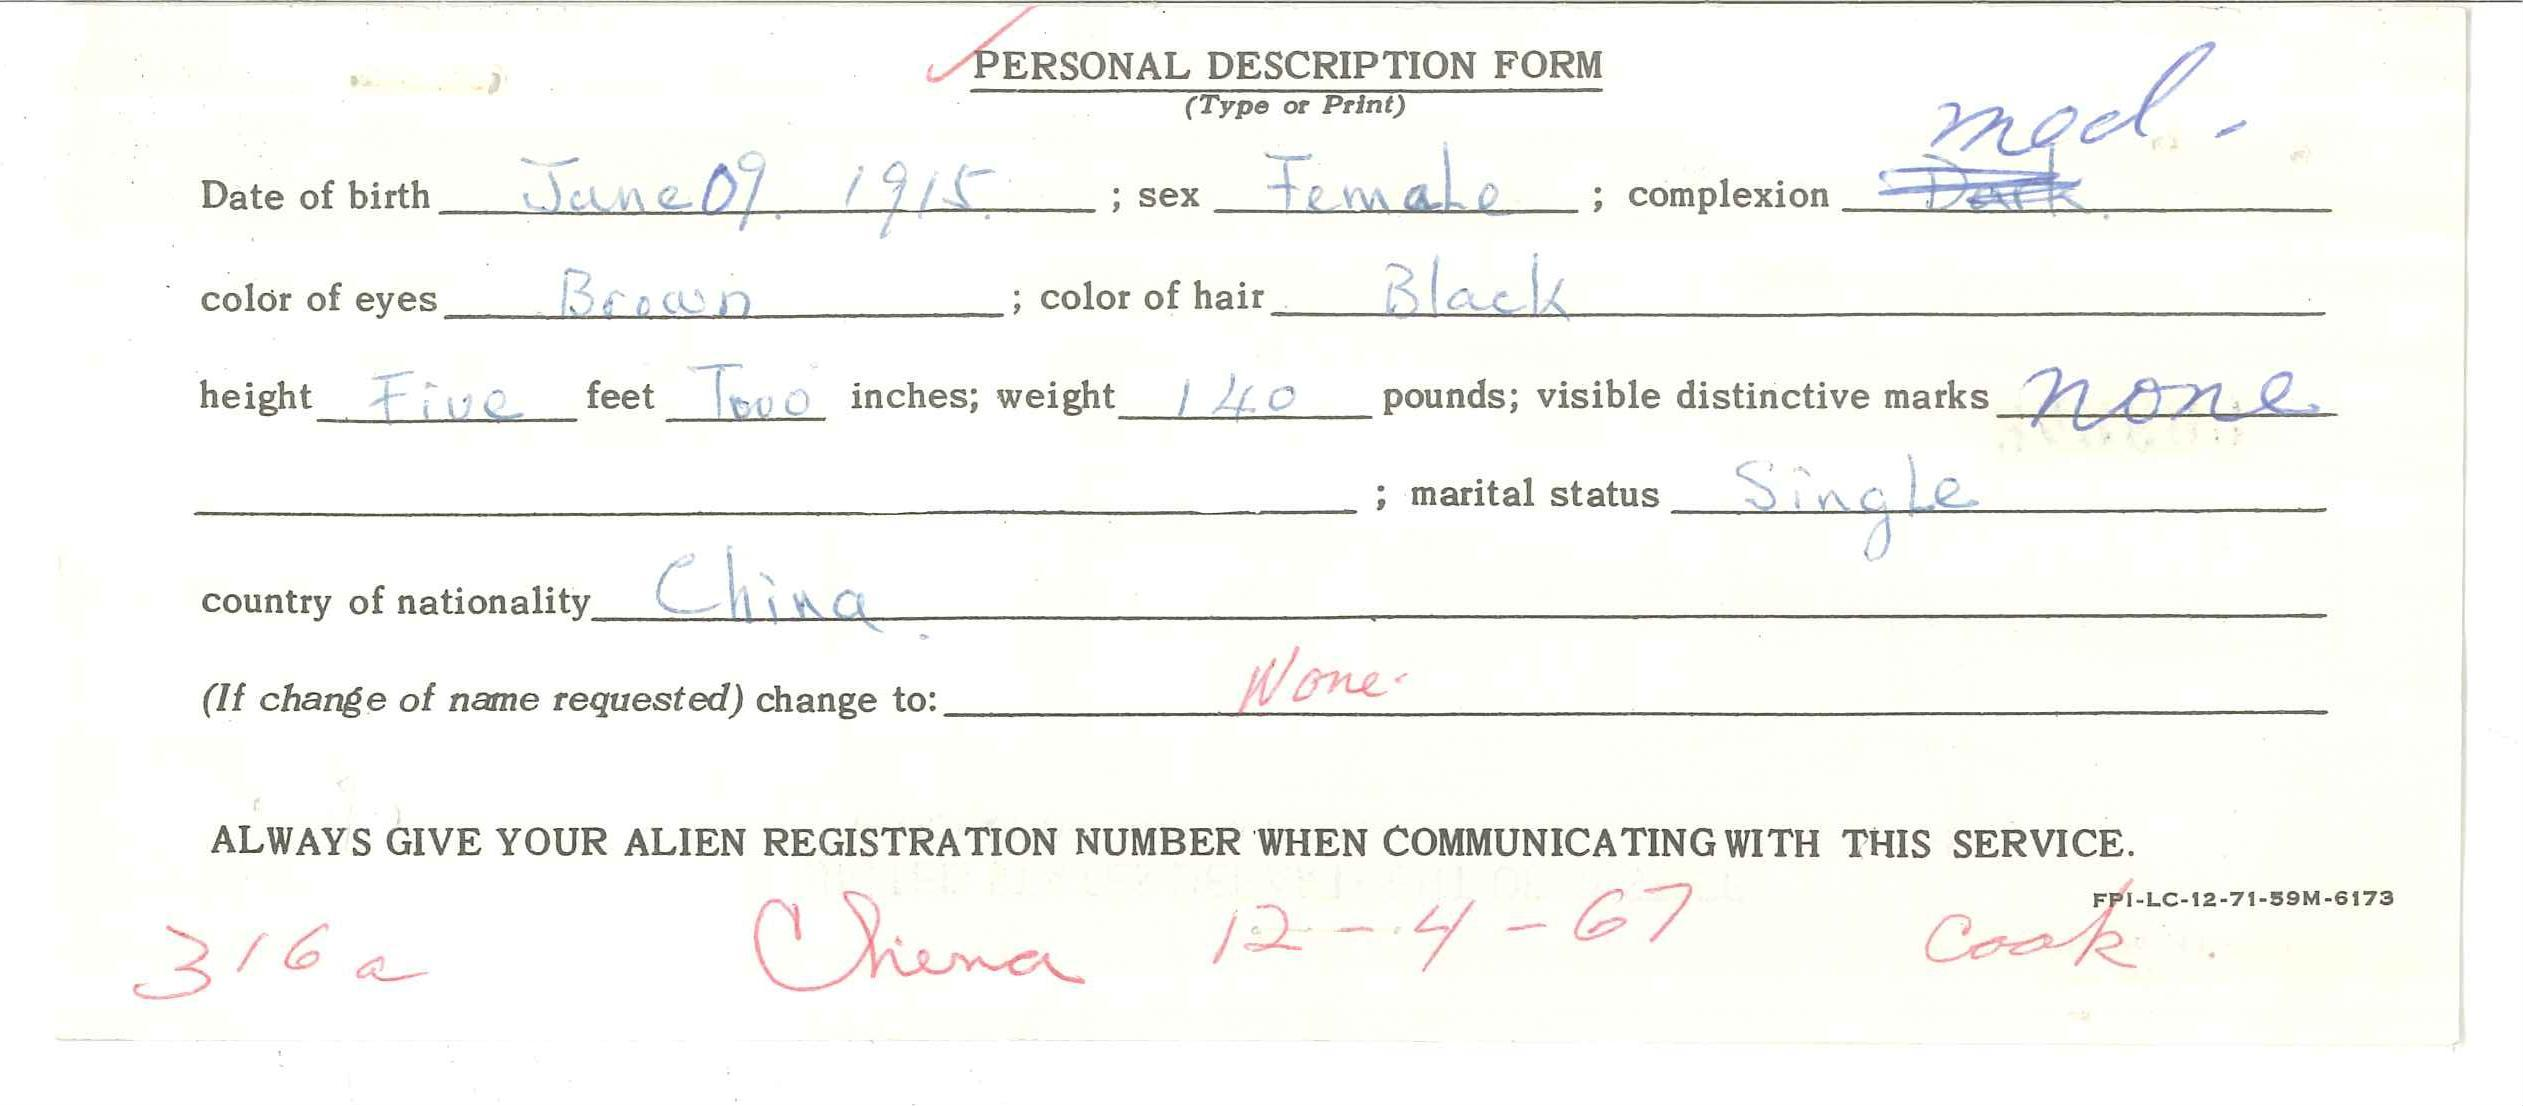 PERSONAL DESCRIPTION FORM
(Type or Print)
med.
Date of birth June 09. 1915. ; sex Female ; complexion Dark.
color of eyes Brown ; color of hair Black
height Five feet Two inches; weight 140 pounds; visible distinctive marks none
; marital status Single
country of nationality China.
(If change of name requested) change to: None.
ALWAYS GIVE YOUR ALIEN REGISTRATION NUMBER WHEN COMMUNICATING WITH THIS SERVICE.
FPI-LC-12-71-59M-6173
316a China 12-4-67 Cook.